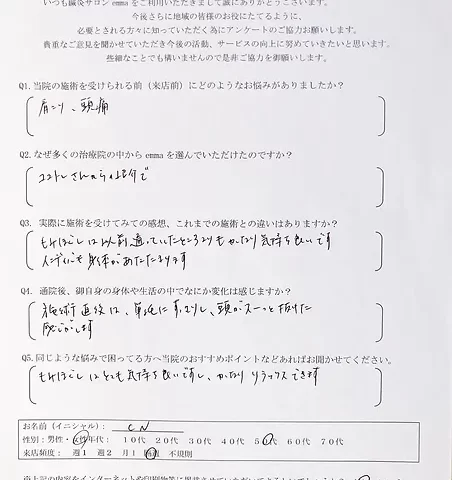 いつも鍼灸サロン emma をご利用いただきまして誠にありがとうございます。
今後さらに地域の皆様のお役にたてるように、
必要とされる方々に知っていただく為にアンケートのご協力お願いします。
貴重なご意見を聞かせていただき今後の活動、サービスの向上に努めていきたいと思います。
些細なことでも構いませんので是非ご協力を御願いします。
Q1.当院の施術を受けられる前（来店前）にどのようなお悩みがありましたか？
肩こり、頭痛
Q2.なぜ多くの治療院の中から emma を選んでいただけたのですか？
さんからの紹介で
Q3. 実際に施術を受けてみての感想、これまでの施術との違いはありますか？
もみほぐしは以前通っていたところよりもかなり気持ち良いです
身体があたたまります
Q4. 通院後、御自身の身体や生活の中でなにか変化は感じますか？
施術直後は、単純にすっきりし、頭がスーっと抜けた
感じがします
Q5.同じような悩みで困ってる方へ当院のおすすめポイントなどあればお聞かせてください。
もみほぐしはとても気持ち良いですし、かなりリラックスできます
お名前（イニシャル）： C N
性別：男性・女性 年代： 10代 20代 30代 40代 50代 60代 70代
来店頻度： 週1 週2 月1 不規則